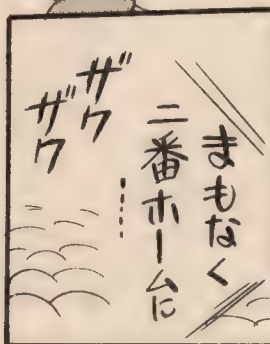 まもなく
二番ホームに……
ザワ
ザワ